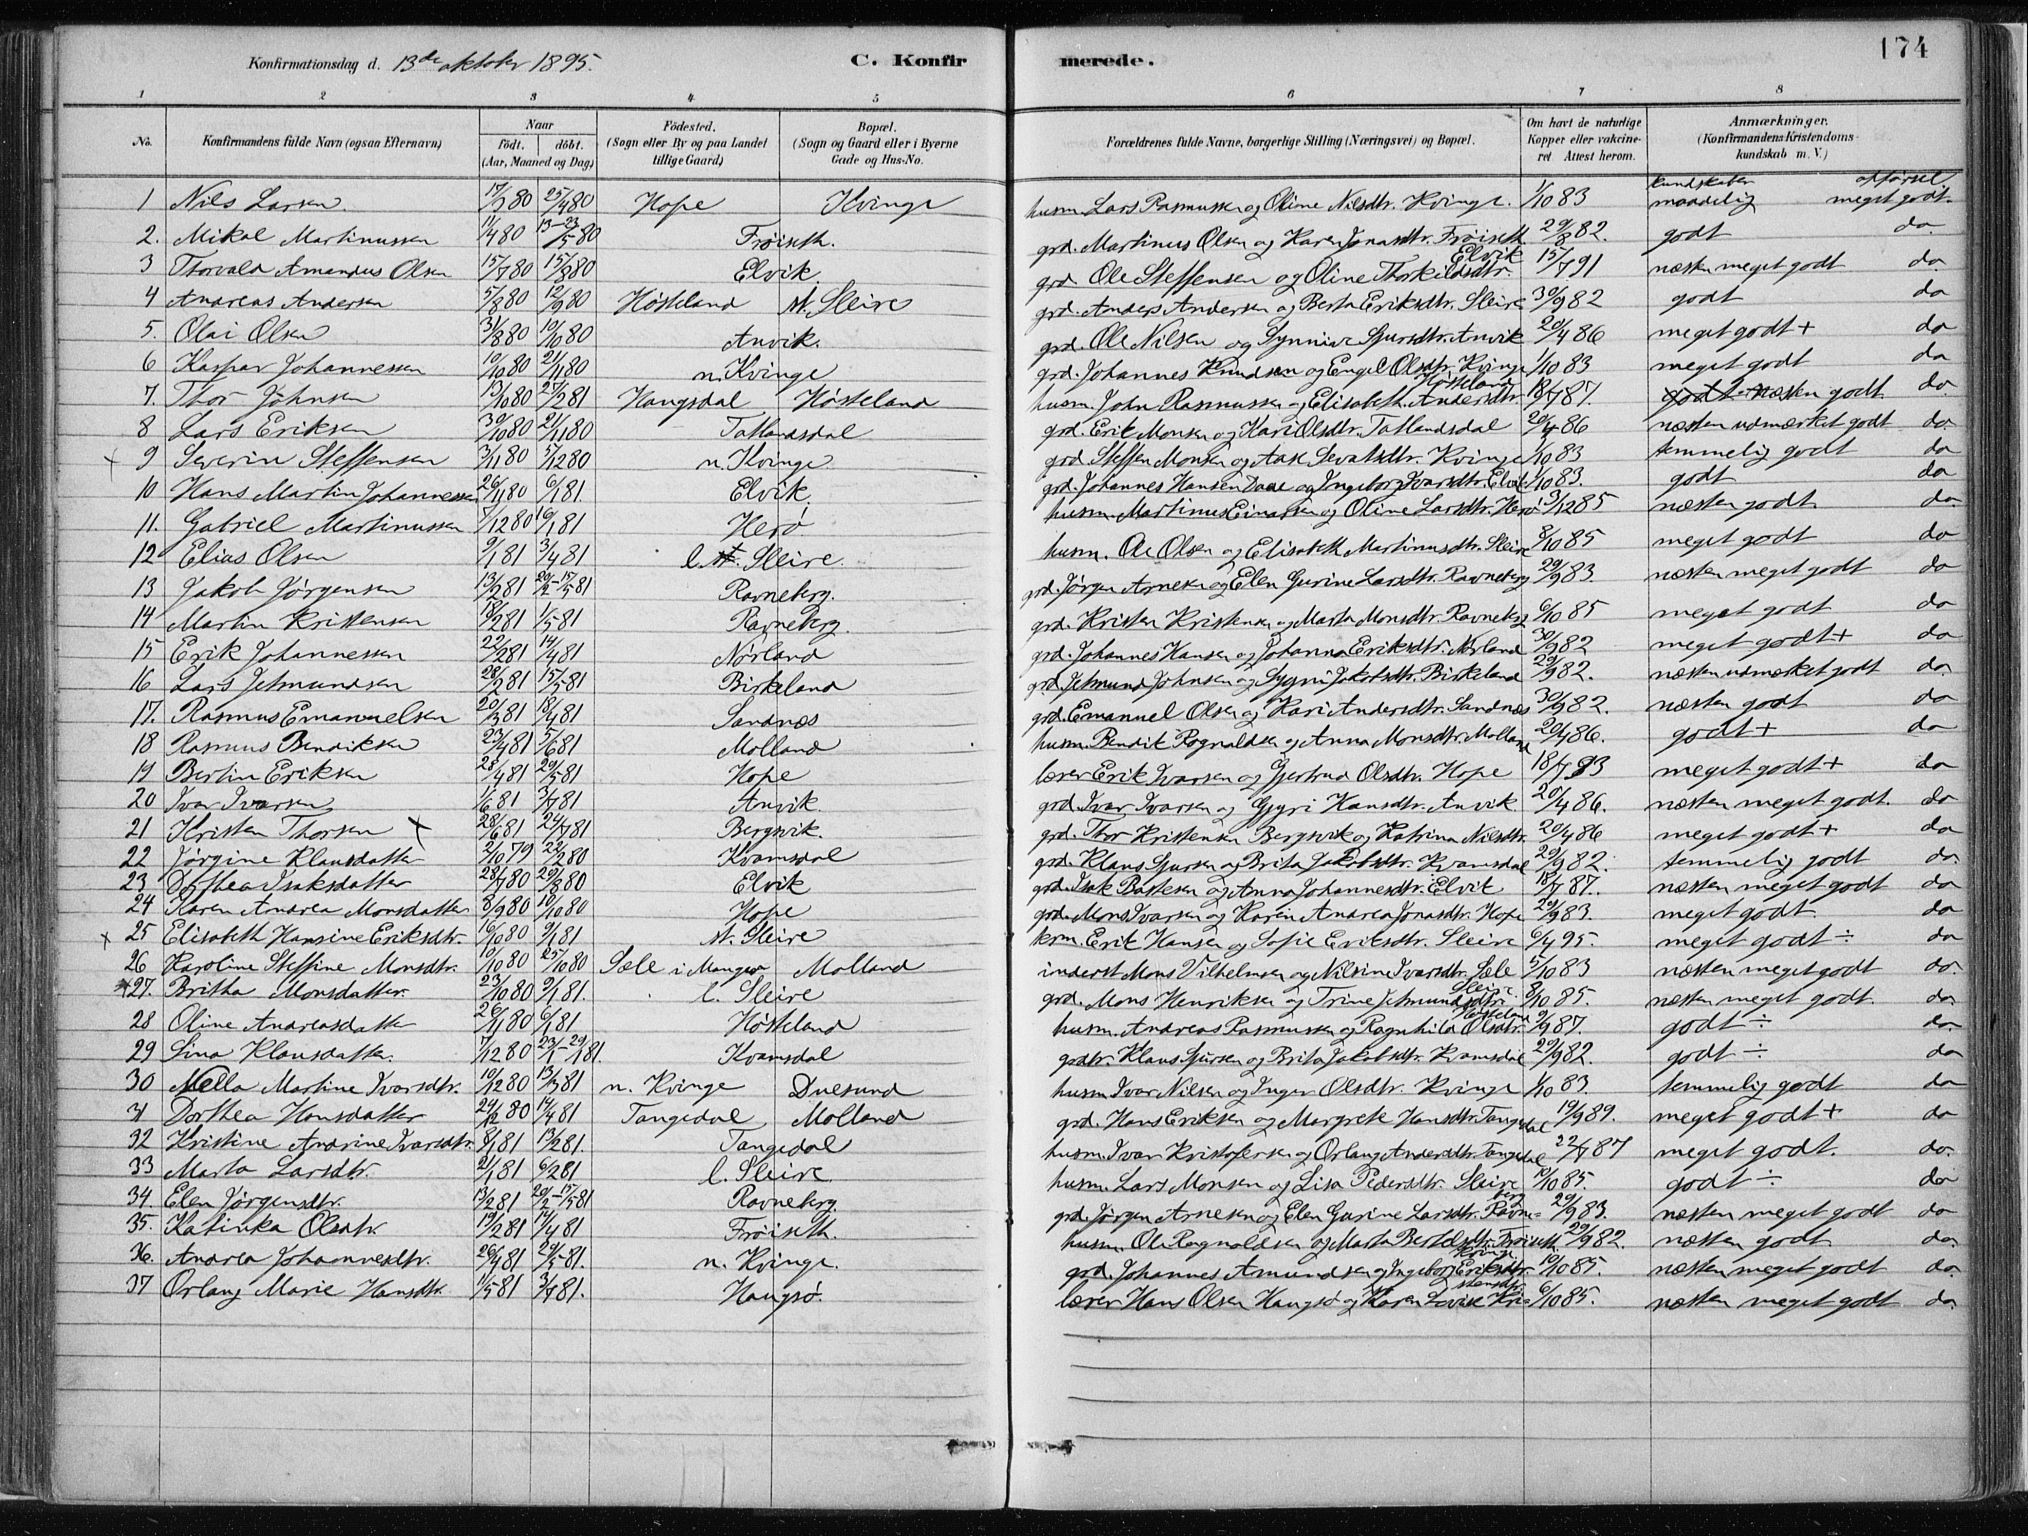 174
Konfirmationsdag d. 13de oktober 1895.
C. Konfirmerede.
1 2 3 4 5 6 7 8
No. Konfirmandens fulde Navn (ogsaa Efternavn) Naar født. døbt. (Aar, Maaned og Dag) Fødested. (Sogn eller By og paa Landet tillige Gaard) Bopæl. (Sogn og Gaard eller i Byerne Gade og Hus-No. Forældrenes fulde Navne, borgerlige Stilling (Næringsvei) og Bopæl. Om havt de naturlige Kopper eller vakcineret Attest herom. Anmærkninger. (Konfirmandens Kristendomskundskab m. V.)
kundskaber opførsel
1 Nils Larsen 25/4 80 Hope Kvinge husm. Lars Rasmussen og Oline Nilsdtr. Kvinge. 1/10 83 maadelig meget godt.
2. Mikal Martinussen 1/4 80 13-23/5 80 Frøiseth. grd. Martinus Olsen og Karen Jonasdtr. Frøiseth 29/8 82. godt do.
3 Thorvald Amandus Olsen 15/7 80 15/8 80 Elvik grd Ole Steffensen og Oline Thorkildsdtr. Elvik 15/7 91 næsten meget godt do
4 Andreas Andersen 5/8 80 12/9 80 Høsteland st. Sleire grd. Anders Andersen og Berta Eriksdtr. Sleire 30/9 82 godt do
5. Olai Olsen 31/8 80 10/10 80 Anvik. grd. Ole Nilsen og Synnive Sjursdtr. Anvik 20/4 86 meget godt + do
6 Kaspar Johannessen 10/10 80 21/11 80 n. Kvinge grd. Johannes Knudsen og Engel Olsdtr. Kvinge 1/10 83 meget godt do
7. Thor Johnsen 13/10 80 27/2 81 Haugsdal Høsteland husm. John Rasmussen og Elisabeth Andersdtr. Høsteland 18/7 87. næsten godt do.
8 Lars Eriksen 30/10 80 21/11 80 Totlandsdal grd. Erik Monsen og Kari Olsdtr. Totlandsdal 20/4 86 næsten udmærket godt do.
9 Severin Steffensen 3/11 80 5/12 80 n. Kvinge grd. Steffen Monsen og Aase Sevatsdtr. Kvinge 1/10 83 temmelig godt do
10 Hans Martin Johannessen 26/11 80 6/1 81 Elvik. grd. Johannes Hansen Daae og Ingeborg Ivarsdtr. Elvik 1/10 83. godt do
11. Gabriel Martinussen 7/12 80 16/1 81 Herø husm. Martinus Einarsen og Oline Larsdtr. Herø 3/12 85 næsten godt. do.
12 Elias Olsen 9/1 81 3/4 81 l. Sleire. husm. Ole Olsen og Elisabeth Martinusdtr. Sleire 8/10 85 meget godt do
13 Jakob Jørgensen 13/2 81 20/2-17/5 81 Ravneberg. grd. Jørgen Arnesen og Elen Gurine Larsdtr. Ravneberg 29/9 83. næsten meget godt do
14 Martin Kristensen 18/2 81 1/5 81 Ravneberg. grd. Kristen Kristensen og Marta Monsdtr. Ravneberg 6/10 85 meget godt do
15 Erik Johannessen 22/2 81 14/4 81 Nørland grd. Johannes Hansen og Johanna Eriksdtr. Nørland 30/9 82 meget godt + do
16 Lars Jetmundsen 28/2 81 15/5 81 Birkeland grd. Jetmund Johnsen og Sygni Jakobsdtr. Birkeland 29/9 82. næsten udmærket godt do.
17. Rasmus Emanuelsen 20/3 81 18/4 81 Sandnæs grd. Emanuel Olsen og Kari Andersdtr. Sandnæs 30/9 82. næsten godt do
18 Rasmus Bendiksen 23/4 81 5/6 81 Molland husm. Bendik Rognaldsen og Anna Monsdtr. Molland 20/4 86. godt + do
19 Bertin Eriksen 28/4 81 29/5 81 Hope lærer Erik Ivarsen og Gjertrud Olsdtr. Hope 18/7 83 meget godt + do
20 Ivar Ivarsen 1/6 81 3/7 81 Anvik grd. Ivar Ivarsen og Gjyri Hansdtr. Anvik 20/4 86. næsten meget godt. do
21 Kristen Thorsen x 28/6 81 24/7 81 Bergsvik. grd. Thor Kristensen Bergsvik og Katrina Nilsdtr. 20/4 86 meget godt + do
22 Jørgine Klausdatter 2/10 79 22/2 80 Kvamsdal grd. Klaus Sjursen og Brita Jakobsdtr. Kvamsdal 29/9 82. temmelig godt do.
23 Dorthea Isaksdatter 28/7 80 29/8 80 Elvik grd. Isak Bastesen og Anna Johannesdtr. Elvik 18/7 87. næsten meget godt do
24 Karen Andrea Monsdatter 8/9 80 10/10 80 Hope grd. Mons Ivarsen og Karen Andrea Jonasdtr. Hope 29/9 83 meget godt. do
25 Elisabeth Hansine Eriksdtr. 16/10 80 9/1 81 st. Sleire krm. Erik Hansen og Sofie Eriksdtr. Sleire 6/4 95. meget godt ÷ do
26 Karoline Steffine Monsdtr. 10/10 80 25/10 80 Sæle i Manger Molland inderst Mons Vilhelmsen og Nilsine Ivarsdtr. Sæle 5/10 83 næsten meget godt do.
27. Britha Monsdatter. 23/10 80 9/1 81. l. Sleire grd. Mons Henriksen og Trine Jetmundsdtr. Sleire 8/10 85. næsten meget godt. do
28 Oline Andreasdatter 26/11 80 6/1 81 Høsteland husm. Andreas Rasmussen og Ragnhild Olsdtr. Høsteland 9/9 87. godt ÷ do.
29 Sina Klausdatter. 7/12 80 23/1-29/1 81. Kvamsdal grdbr. Klaus Sjursen og Brita Jakobsdtr. Kvamsdal 29/9 82. godt ÷ do
30 Mella Martine Ivarsdtr. 10/12 80 13/3 81 n. Kvinge Duesund husm. Ivar Nilsen og Inger Olsdtr. Kvinge 1/10 83 temmelig godt do
31 Dorthea Hansdatter 24/12 80 14/4 81 Tangedal Molland grd. Hans Eriksen og Margrete Hansdtr. Tangedal 19/9 89. meget godt + do
32 Kristine Andrine Ivarsdtr. 8/1 81 13/2 81. Tangedal husm. Ivar Kristofersen og Orlaug Andersdtr. Tangedal 22/7 87 meget godt. do.
33 Marta Larsdtr. 21/1 81 6/2 81 l. Sleire. husm. Lars Monsen og Lisa Pedersdtr. Sleire 10/10 85. godt ÷ do
34. Elen Jørgensdtr. 13/2 81 20/2-17/5 81 Ravneberg. grd. Jørgen Arnesen og Elen Gurine Larsdtr. Ravneberg 29/9 83. næsten meget godt do
35. Katinka Olsdtr. 19/2 81 14/4 81 Frøiseth. husm. Ole Rognaldsen og Marta Bertelsdtr. Frøiseth 29/9 82. næsten godt do.
36. Andrea Johannesdtr. 26/4 81 29/5 81. n. Kvinge. grd. Johannes Amundsen og Ingeborg Eriksdtr. Kvinge 10/10 85. næsten meget godt do.
37 Orlaug Marie Hansdtr. 1/5 81 3/7 81. Haugsø. lærer Hans Olsen Haugsø og Karen Lovise Kristensdtr. 6/10 85. næsten meget godt do.